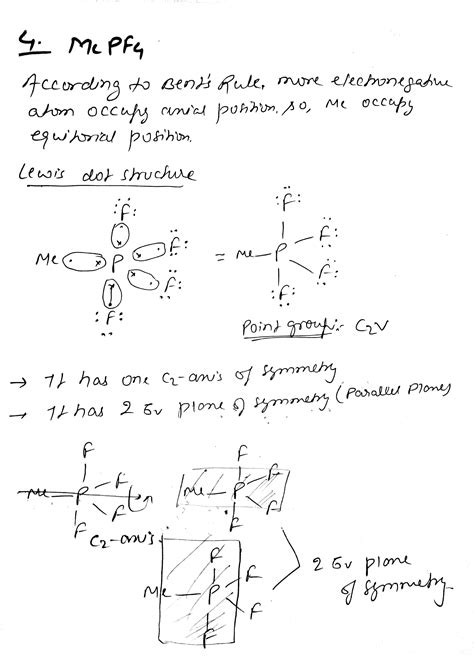 4. MePF4
According to Bent's Rule, more electronegative
atom occupy axial position. so, Me occupy
equitorial position.
Lewis dot structure
F
Me P F = Me P F
F F
F F
Point group:- C2V
→ It has one C2-axis of symmetry
→ It has 2 σv plane of symmetry (Parallel Plane)
F F
Me P F Me P F
F F
F F
C2-axis
F
Me P F
F
F
2 σv plane
of symmetry